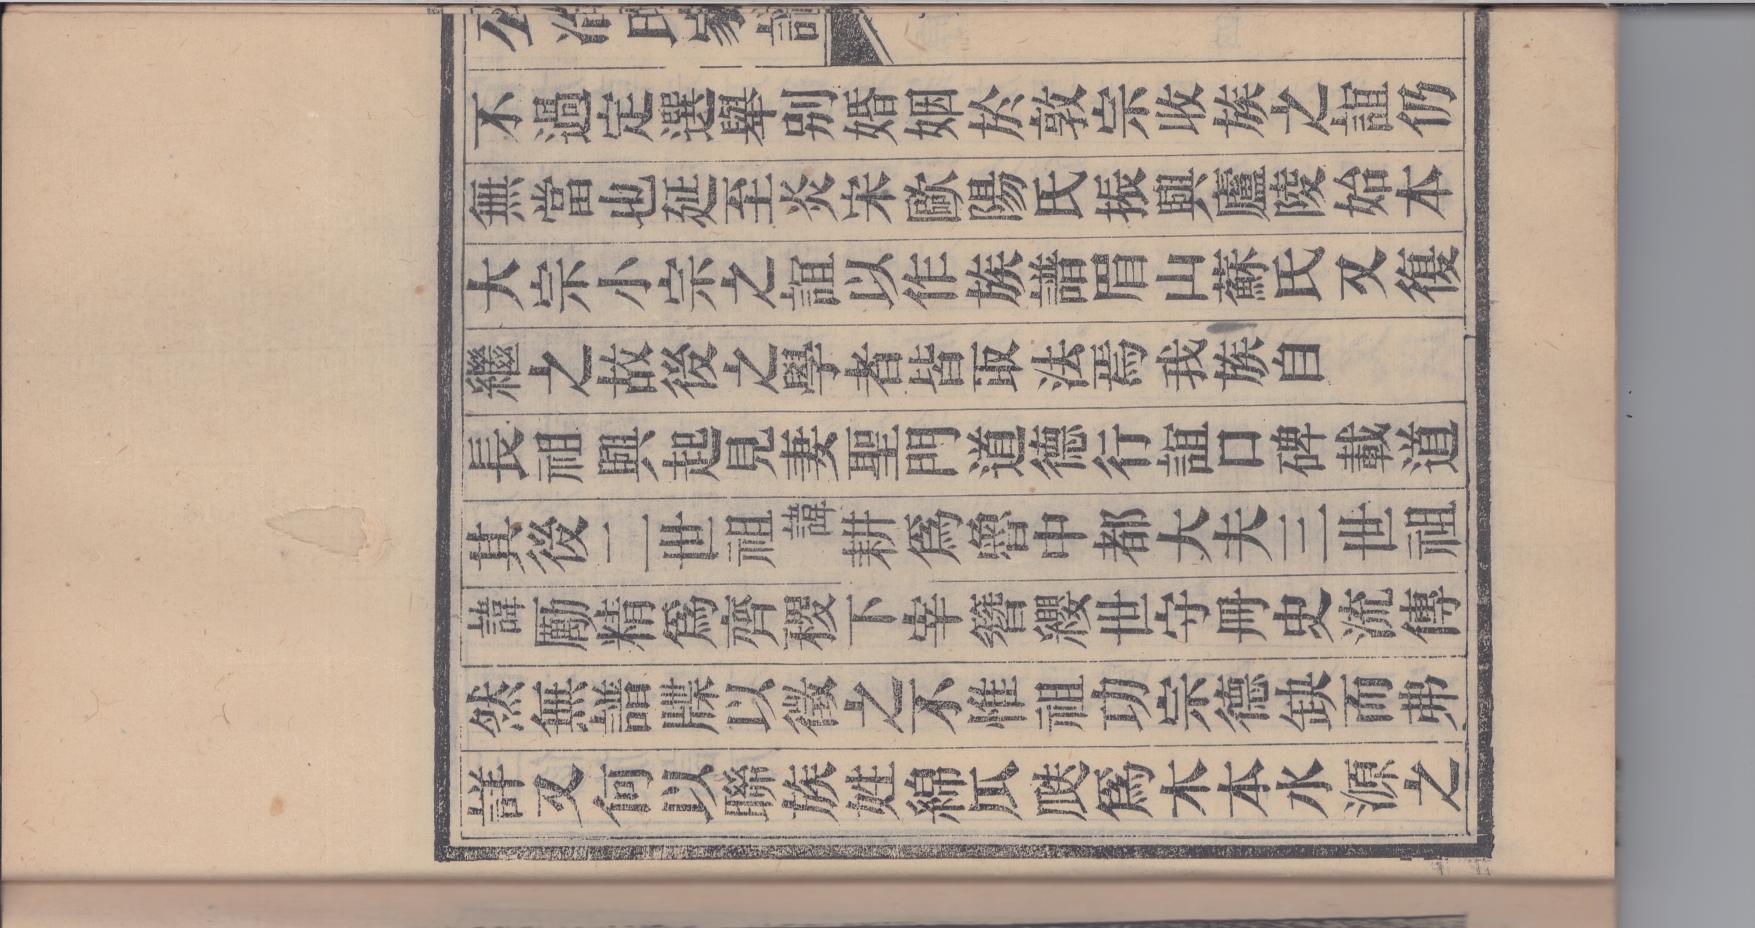 公冶氏家譜
不過定選舉別婚姻於敦宗收族之誼仍
無當也延至炎宋歐陽氏振興廬陵始本
大宗小宗之誼以作族譜眉山蘇氏又復
繼之故後之學者皆取法焉我族自
長祖興起見妻聖門道德行誼口碑載道
其後二世祖諱耕為魯中都大夫三世祖
諱勵精為齊稷下宰簪纓世守冊史流傳
然無譜牒以徵之不惟祖功宗德缺而弗
詳又何以聯族姓綿瓜瓞為木本水源之